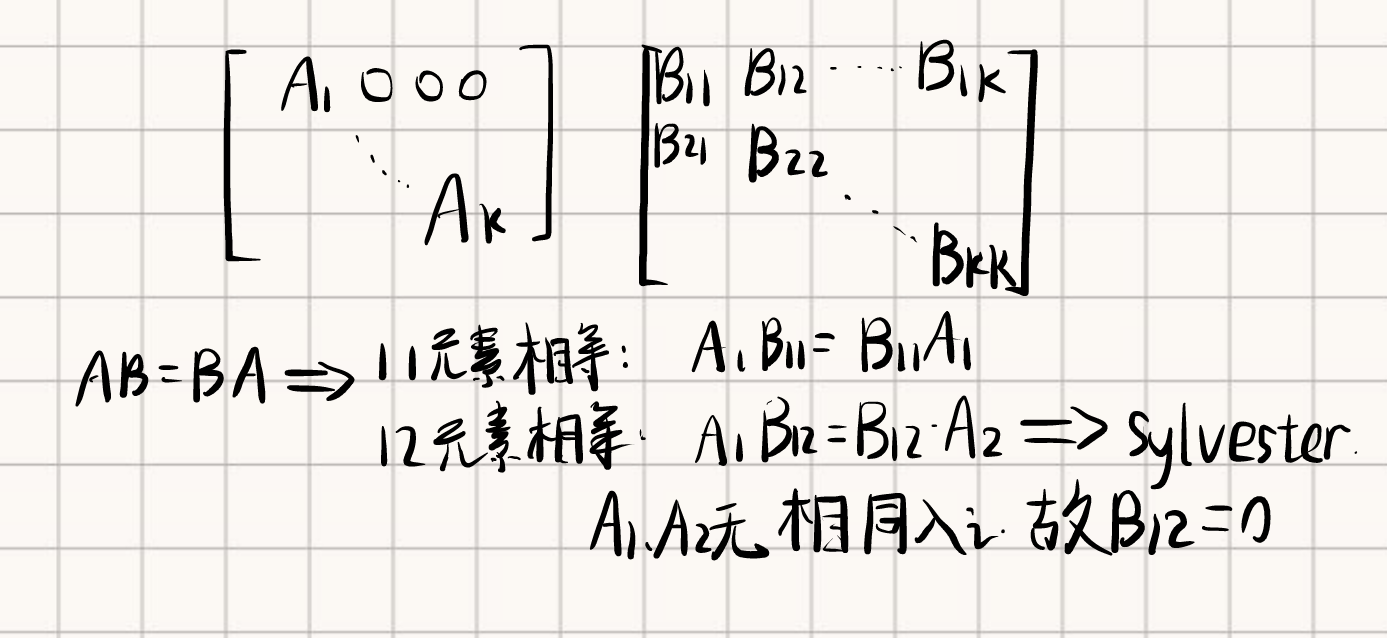 [ A₁ 0 0 0 ⋱ Aₖ ] [ B₁₁ B₁₂ ····· B₁ₖ
B₂₁ B₂₂ ⋱
Bₖₖ ]
AB=BA ⟹ 11元素相等: A₁B₁₁=B₁₁A₁
12元素相等. A₁B₁₂=B₁₂·A₂ ⟹ sylvester.
A₁.A₂无相同λi. 故B₁₂=0